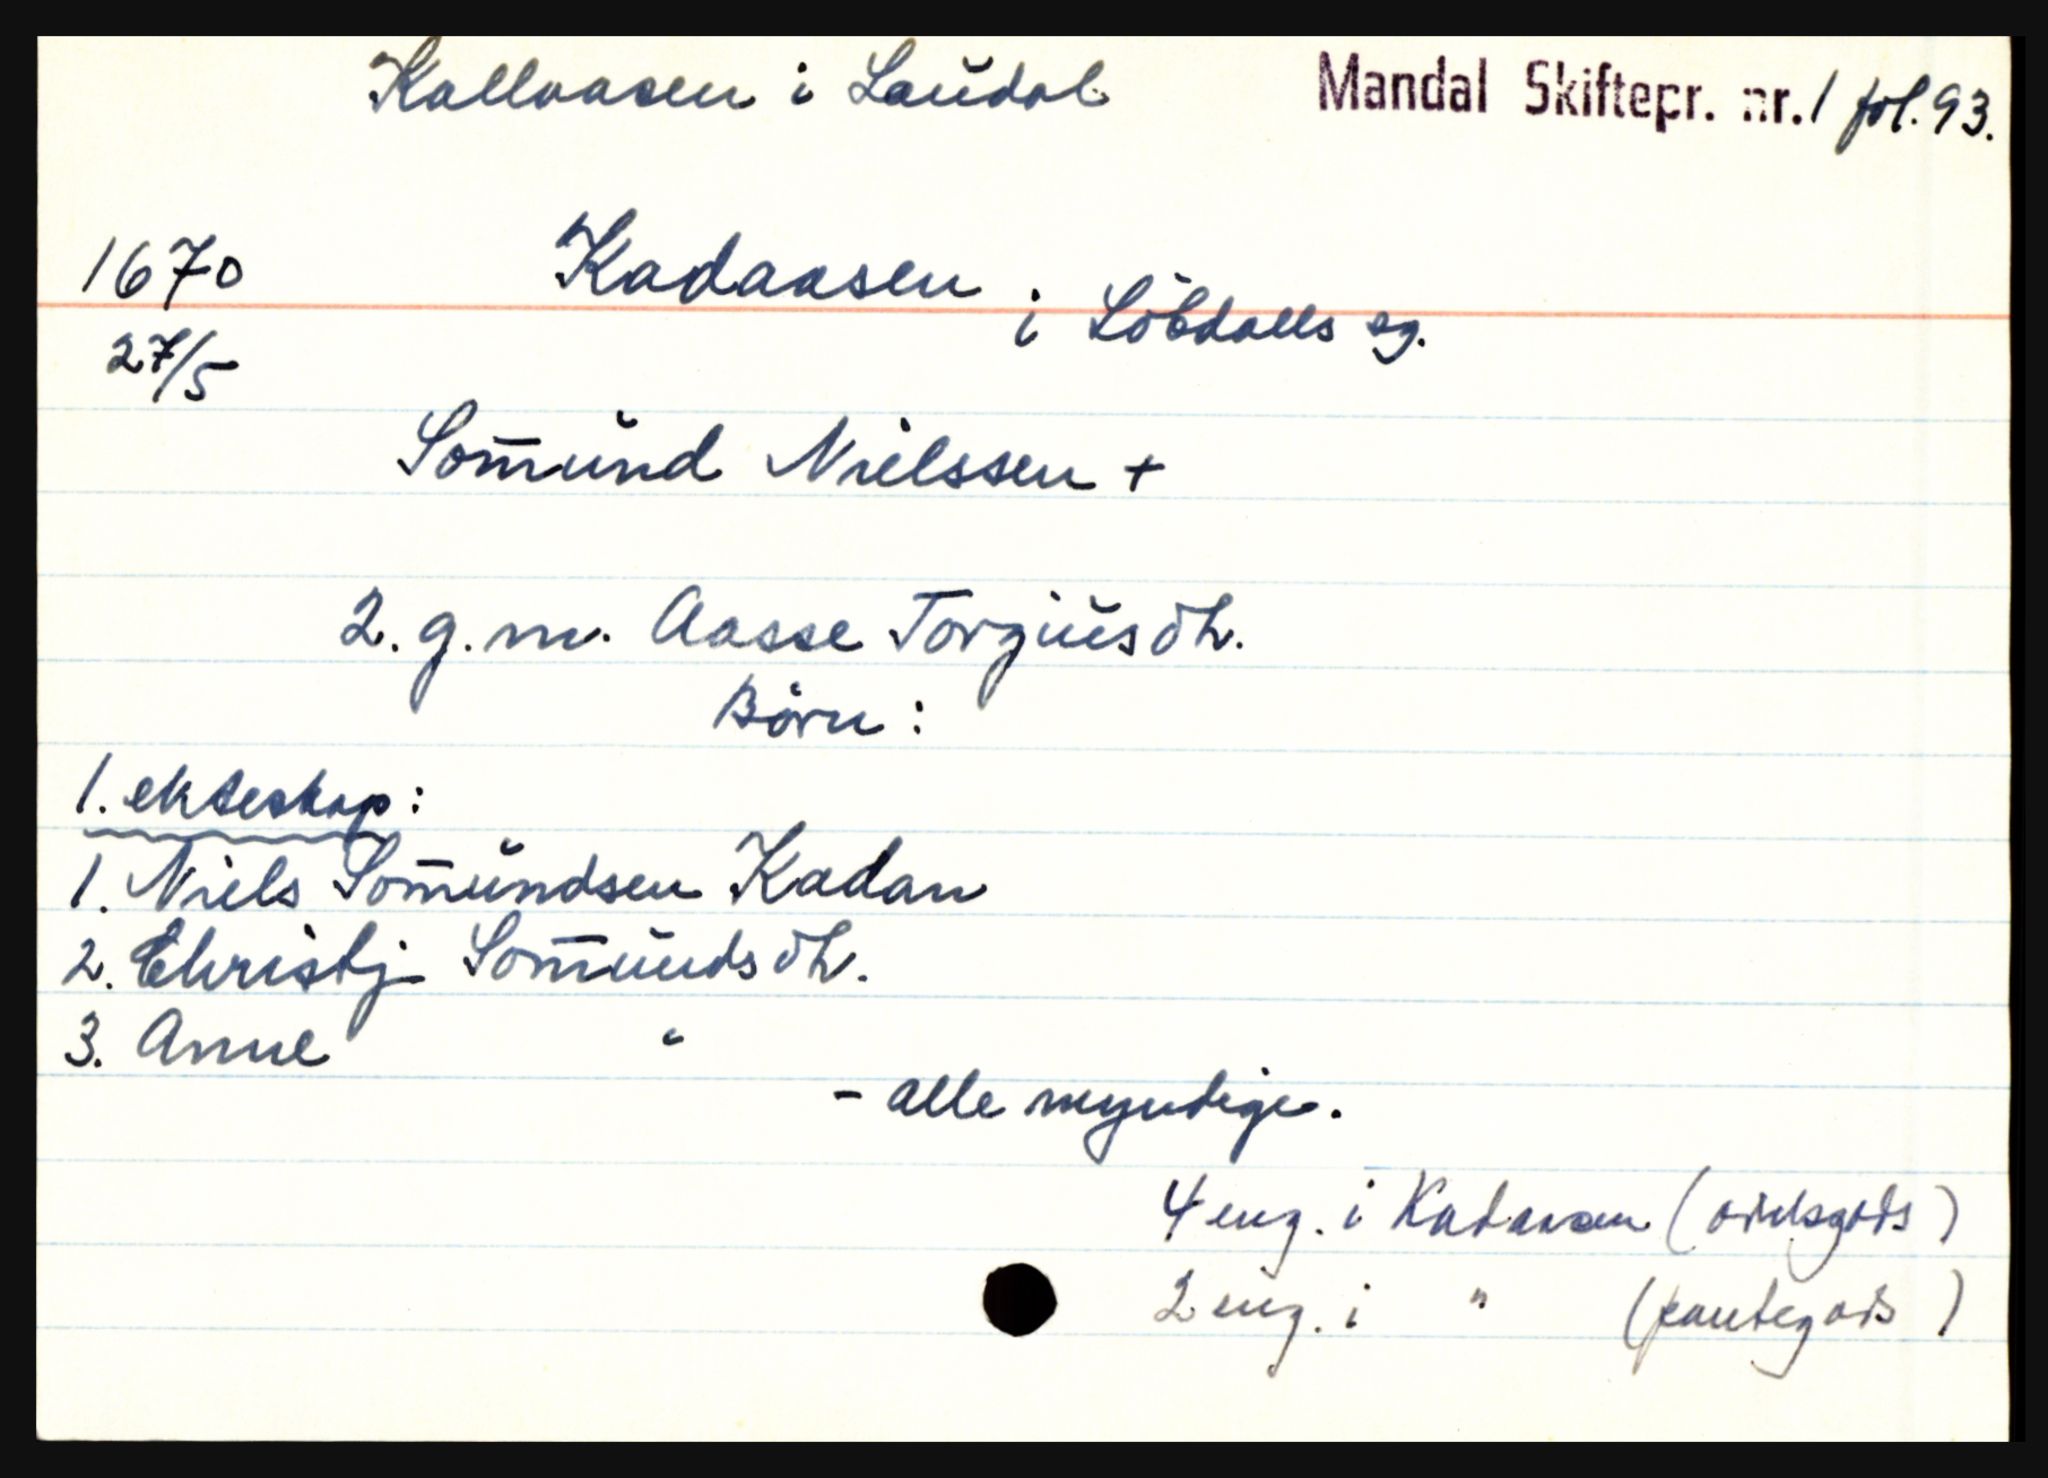 Kallaasen i Laudal
Mandal Skiftepr. nr. 1 fol. 93.
1670
Kadaasen
i Löbdalls sg.
27/5
Som̄und Nielssen +
2. g. m. Aasse Torgiusdh.
Börn :
1. ekteskap :
1. Niels Som̄undsen Kadan
2. Christj Som̄undsdh.
3. Anne "
- alle myndige.
4 eng. i Kadaasen (odelsgods)
2 eng. i " (pantegods)